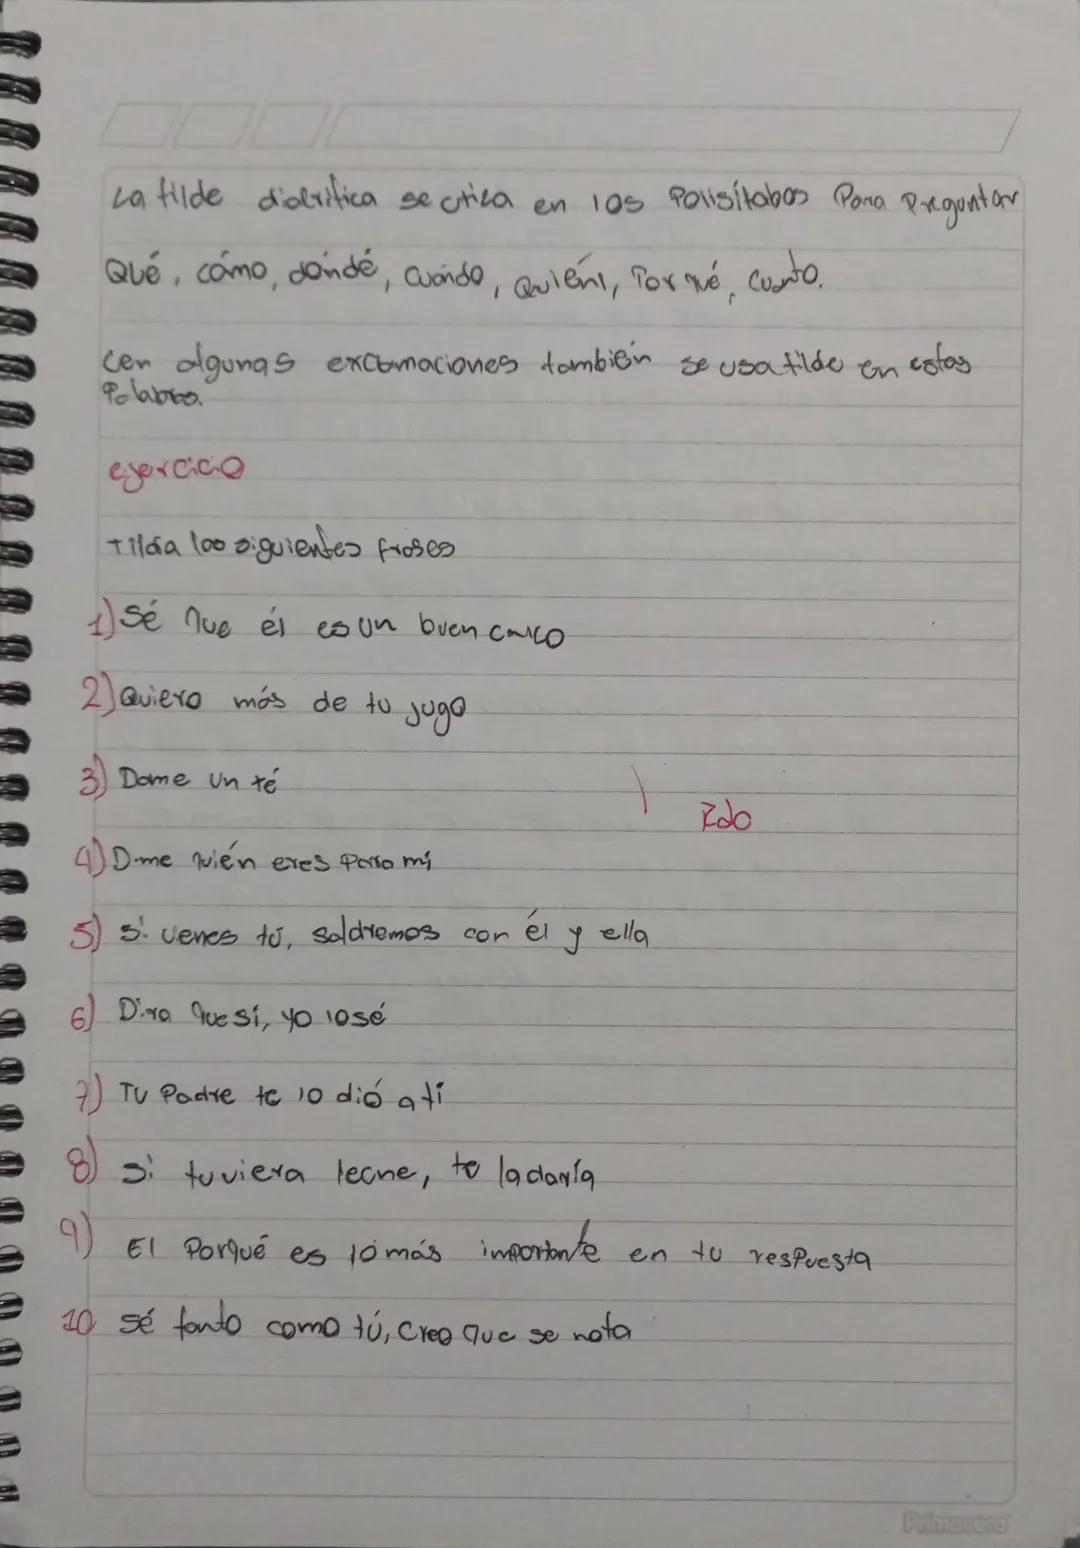 La tilde diacrítica se utiliza en los Polisílabos Para Preguntar
Qué, cómo, dóndé, cuándo, Quién, Por qué, cuanto.
en algunas exclamaciones también se usa tilde en estas
Palabras.
ejercicio
Tilda los siguientes frases
1) Sé que él es un buen chico
2) Quiero más de tu jugo
3) Dame un té
Rdo
4) Dime quién eres Para mí
5) Si vienes tú, saldremos con él y ella
6) Dirá que sí, yo lo sé
7) Tu Padre te lo dió a tí
8) Si tuviera leche, te la daría
9) El Porqué es lo más importante en tu resPuesta
10 Sé tanto como tú, Creo que se nota
Primavera